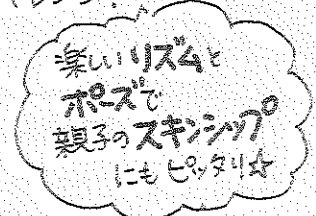 楽しいリズムと
ポーズで
親子のスキンシップ
にもピッタリ☆